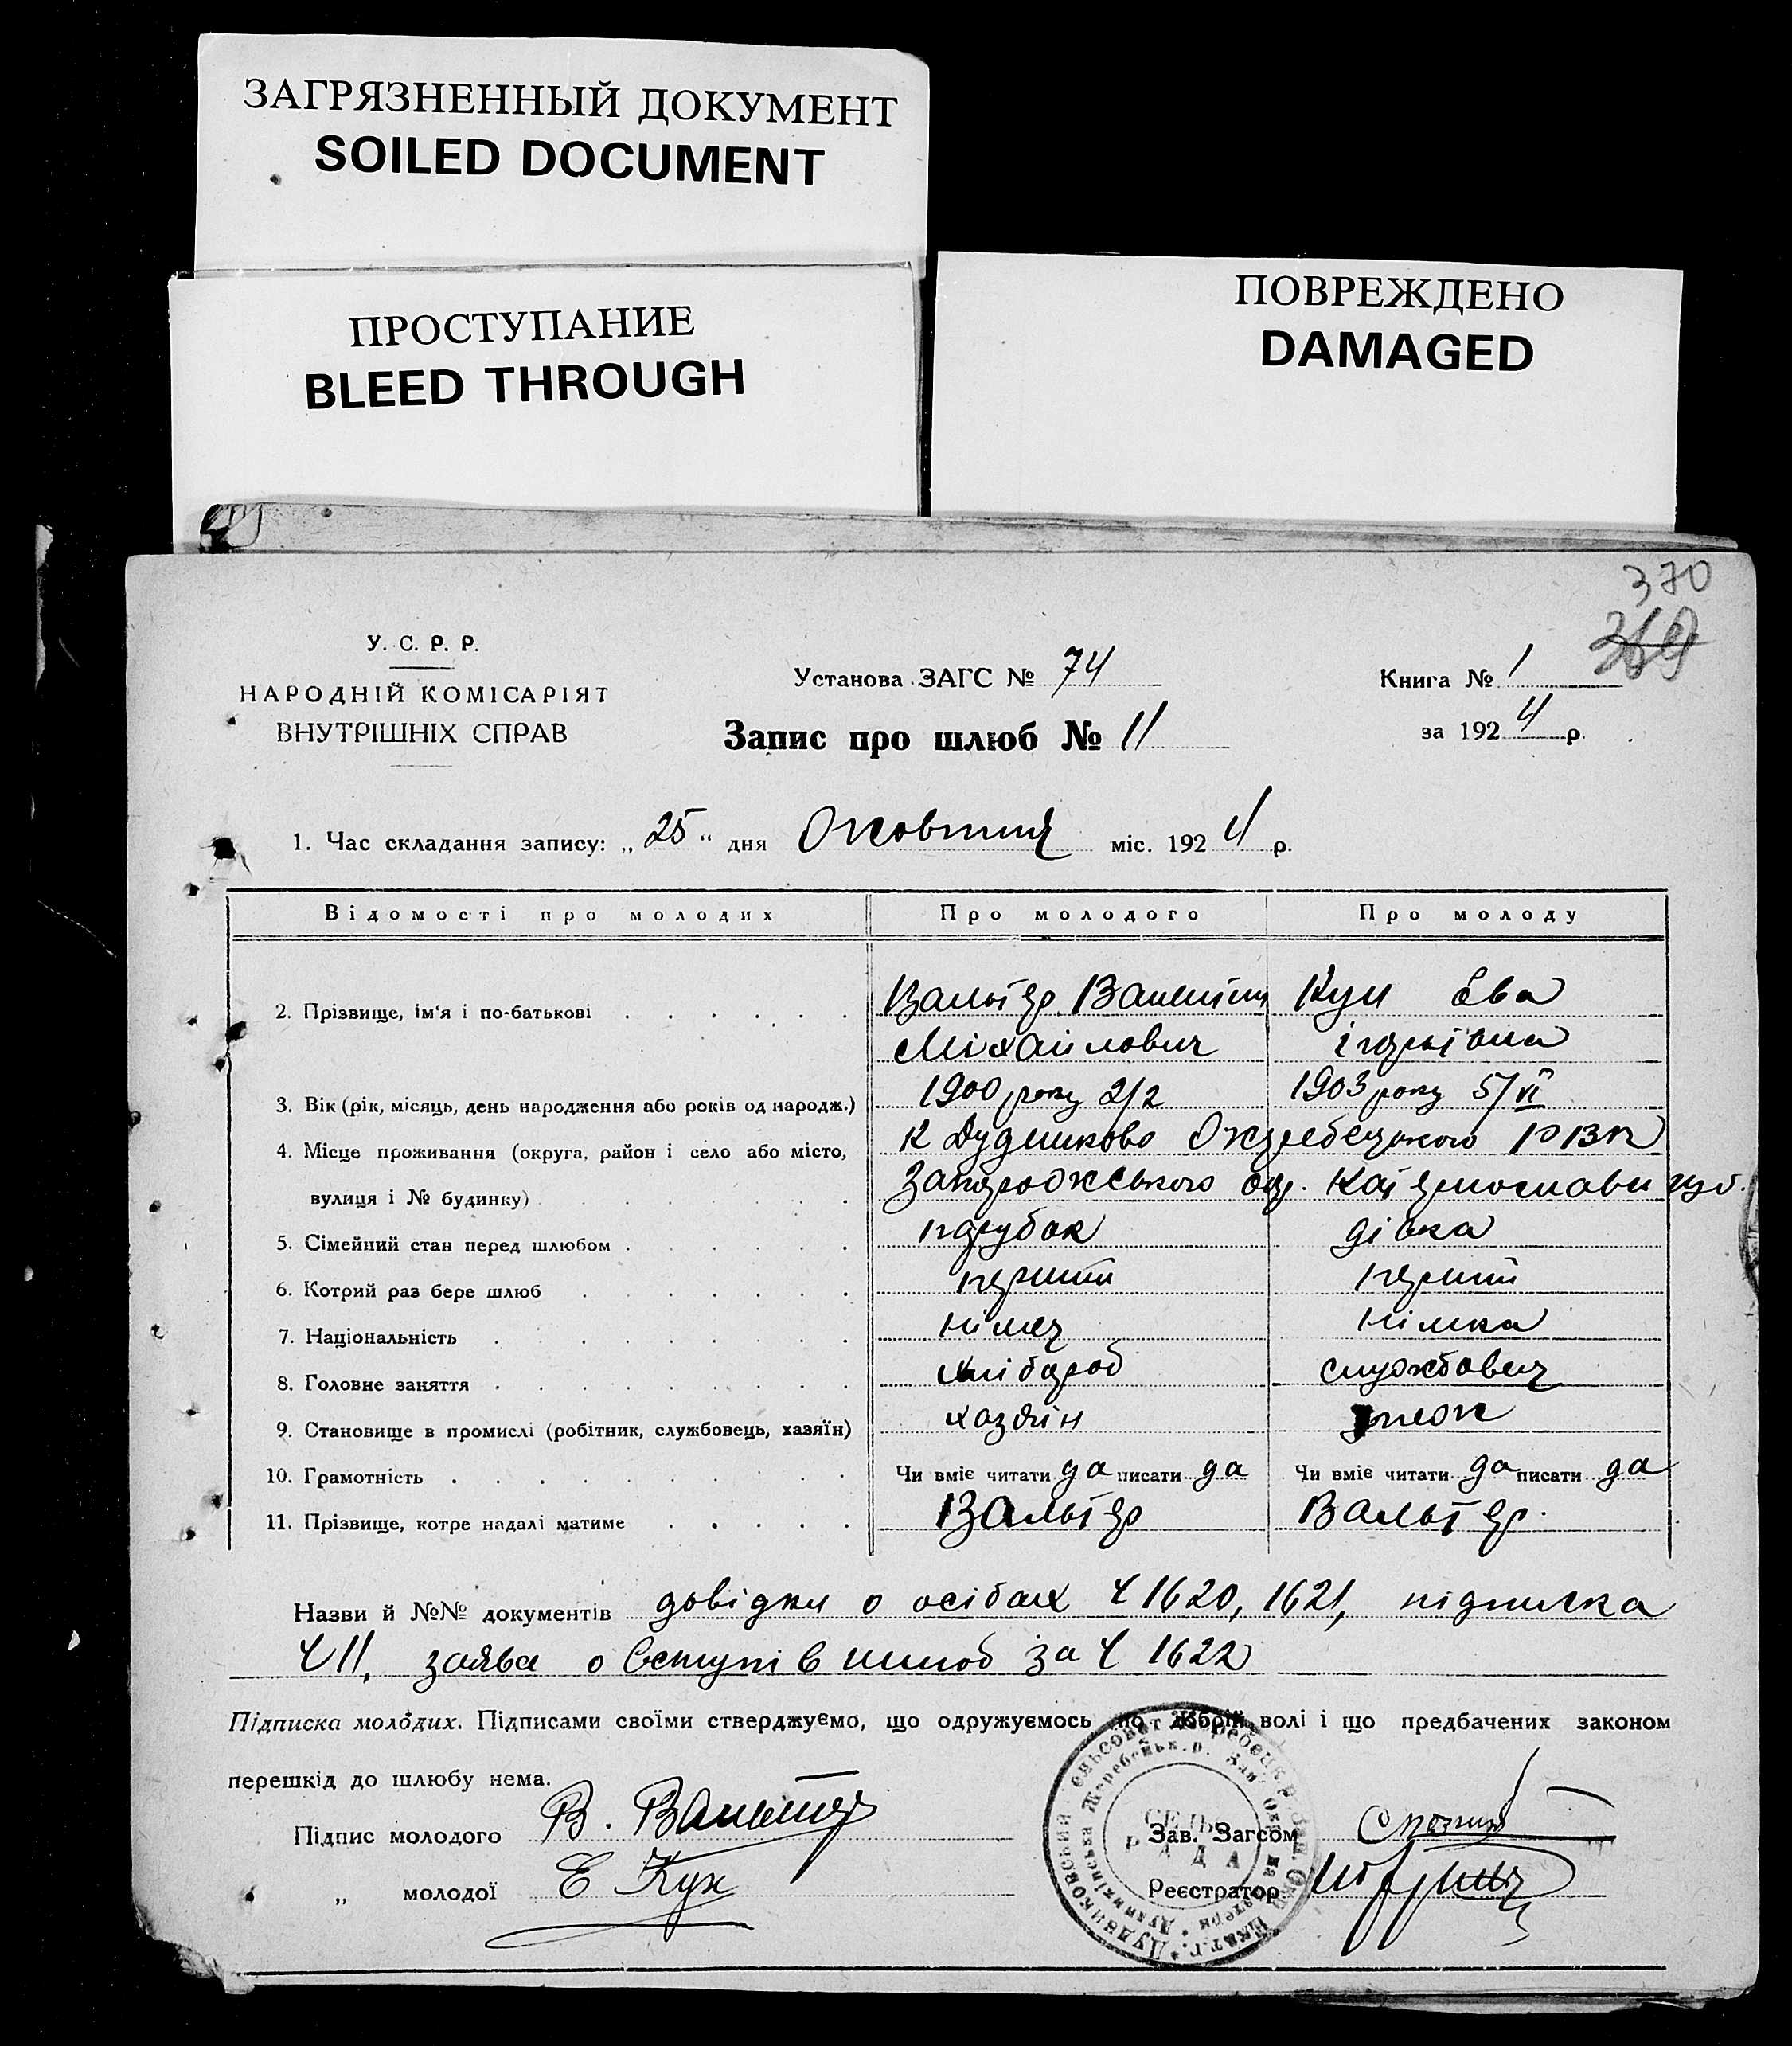 ЗАГРЯЗНЕННЫЙ ДОКУМЕНТ
SOILED DOCUMENT
ПРОСТУПАНИЕ
BLEED THROUGH
ПОВРЕЖДЕНО
DAMAGED
370
369
У. С. Р. Р.
НАРОДНІЙ КОМІСАРІЯТ
ВНУТРІШНІХ СПРАВ
Установа ЗАГС № 74
Запис про шлюб № 11
Книга № 1
за 1924 р.
1. Час складання запису: „25" дня Жовтня міс. 1924 р.
Відомості про молодих Про молодого Про молоду
2. Прізвище, ім'я і по-батькові Вальтер Валентин Кун Єва
Міхайлович
3. Вік (рік, місяць, день народження або років од народж.) 1900 року 2/2 1903 року 5/VI
4. Місце проживання (округа, район і село або місто, К Дудниково Жеребецького РВК
вулиця і № будинку) Запорожського окр. Катеринослави губ.
5. Сімейний стан перед шлюбом парубок дівка
6. Котрий раз бере шлюб перший перший
7. Національність німец німка
8. Головне заняття хлібороб службовец
9. Становище в промислі (робітник, службовець, хазяїн) хозяін
10. Грамотність Чи вміє читати да писати да Чи вміє читати да писати да
11. Прізвище, котре надалі матиме Вальтер Вальтер.
Назви й №№ документів довідки о осібах Ч 1620, 1621, підписка
Ч 11, заява о вступі в шлюб за Ч 1622
Підписка молодих. Підписами своїми стверджуємо, що одружуємось по добрій волі і що предбачених законом
перешкід до шлюбу нема.
Підпис молодого В. Вальтер
Зав. Загсом
„ молодої Е Кун
Реєстратор
СЕЛЬ
РАДА